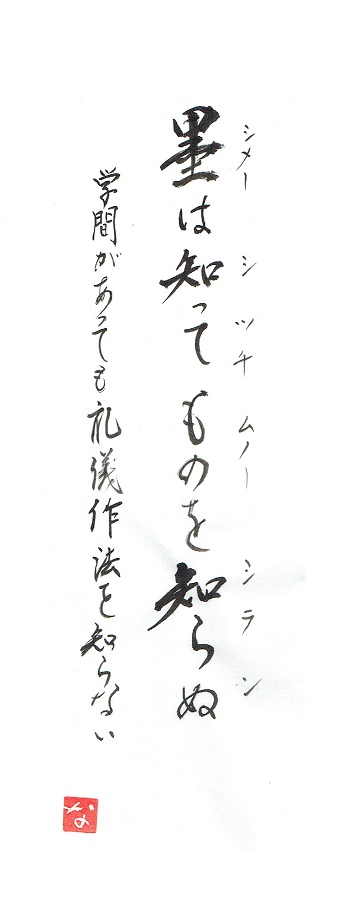 シメー シッチ ムノー シラン
墨は知ってものを知らぬ
学問があっても礼儀作法を知らない
な